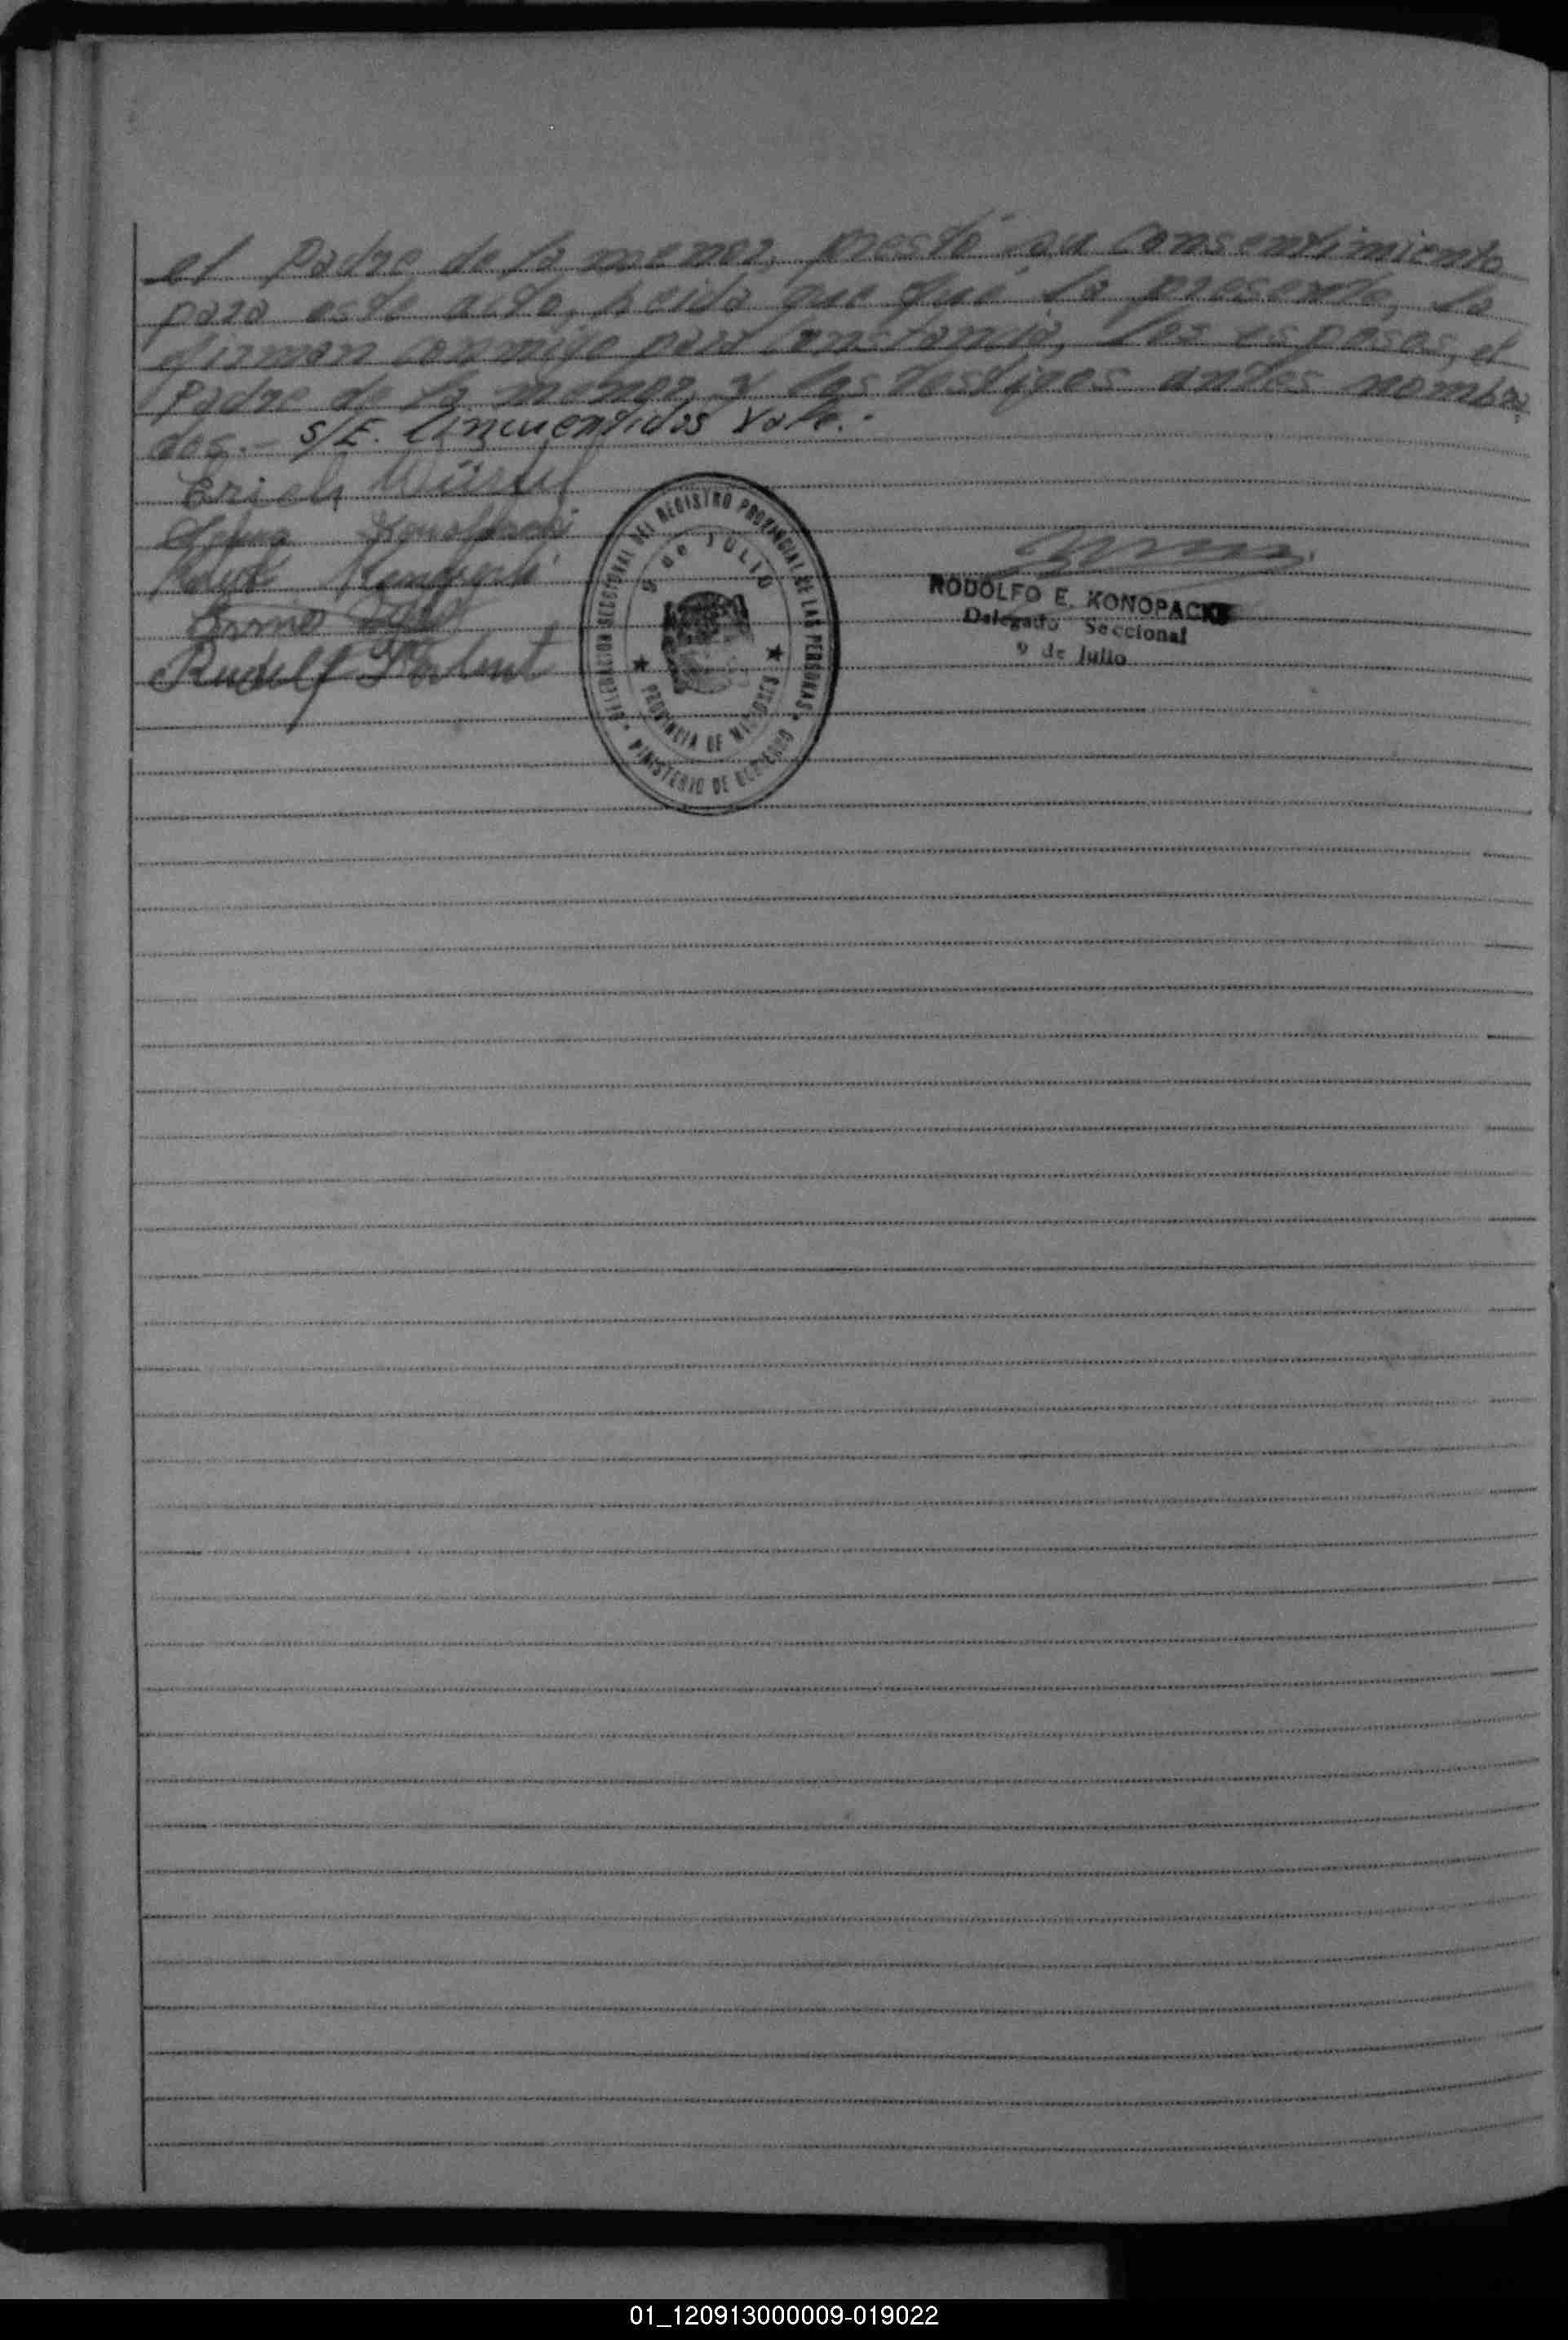 el Padre de la menor, prestó su consentimiento
para este acto, Leída que fué la presente, la
firman conmigo para constancia, los esposos, el
Padre de la menor, y los testigos antes nombra
dos.- S/E. Cincuentidos Vale.-
Erich
Rudolf
DELEGACION SECCIONAL DEL REGISTRO PROVINCIAL DE LAS PERSONAS
9 de JULIO
PROVINCIA DE MISIONES
MINISTERIO DE GOBIERNO
RODOLFO E. KONOPACKI
Delegado Seccional
9 de Julio
01_120913000009-019022